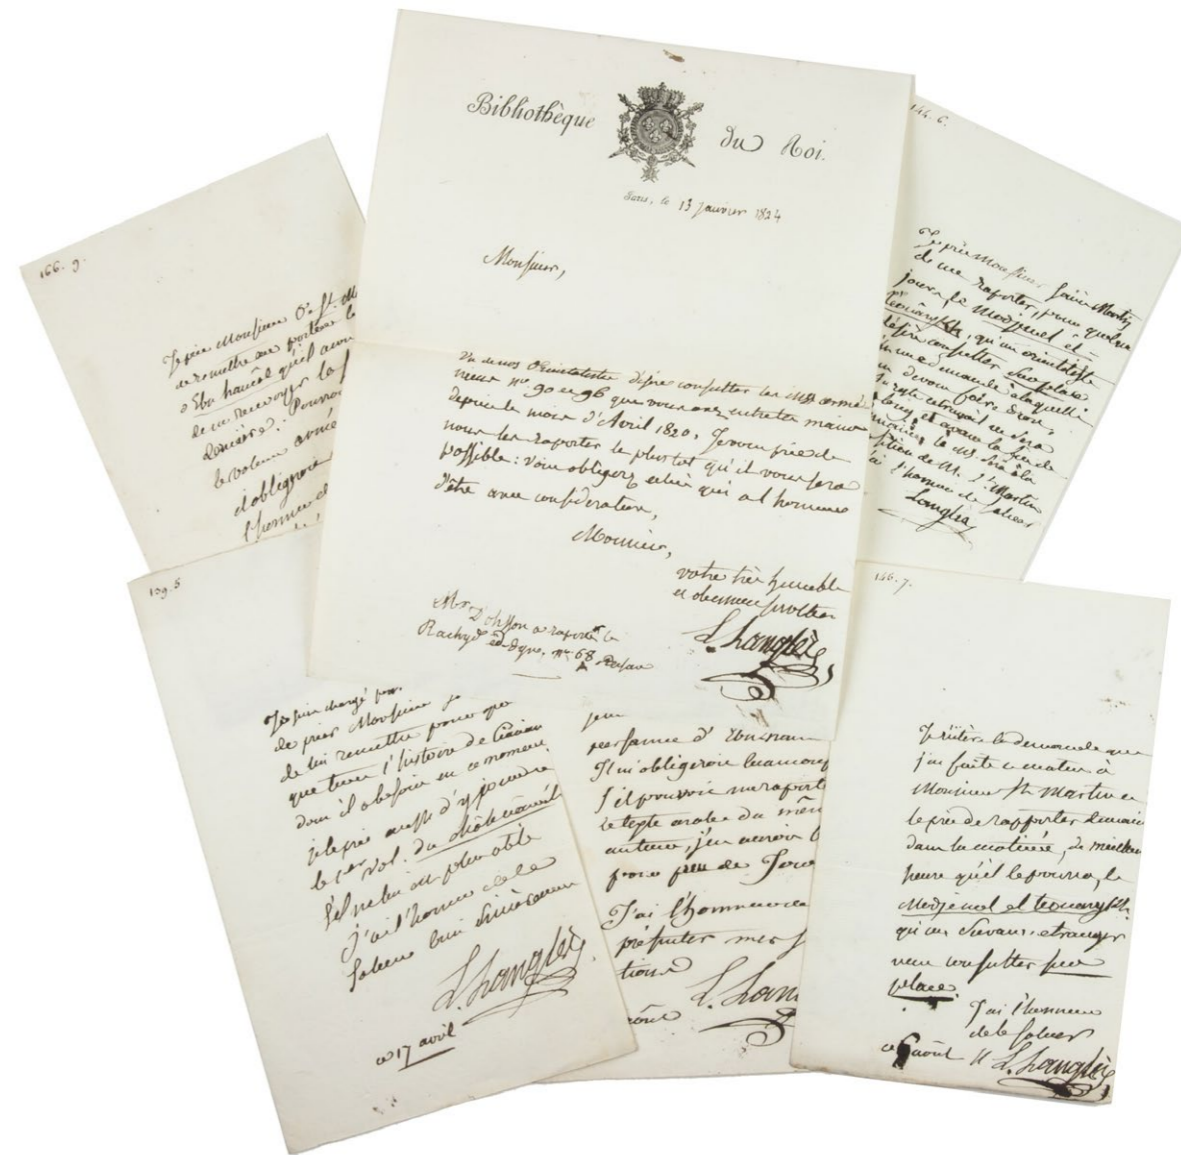 Bibliothèque du Roi.
Paris, le 13 Janvier 1824
Monsieur,
Un de nos Orientalistes désire consulter les Mss armé-
niens nos 90 et 96 que vous avez entre les mains
depuis le mois d'Avril 1820. Je vous prie de
nous les raporter le plustot qu'il vous sera
possible: vous obligerez celui qui a l'honneur
d'être avec consideration,
Monsieur,
votre très humble
et obeissant serviteur
L. Langlès
Mr D'ohsson a raporté le
Rachyd ed-dyn, no 68 A Persan
166. 9.
Je prie Monsieur de St. M
de remettre au porteur le
Ebn haucâl qu'il a
de m'envoyer la
dernière. Pourroi
le volume armé
d'obligeroi
l'honneur d
144. 6.
Je prie Monsieur Saint Martin
de me raporter, pour quelques
jours, le Medjmel et-
tewârykh, qu'un orientaliste
désire consulter sur place
demande à laquelle
devoir faire droit,
et avant la fin de
le Ms. sera à la
de M. St Martin
à l'honneur de saluer
Langlès
139. 5
Je suis chargé par
de prier Monsieur S
de lui remettre pour que
que tems l'histoire de
dont il a besoin en ce moment
je le prie aussi d'y joindre
le 1er vol. du
s'il ne lui est plus utile
J'ai l'honneur de le
saluer bien sincèrement
L. Langlès
ce 17 avril
jeu
persanne d'Ebn haou
Il m'obligeroit beaucoup
s'il pouvoit me raporte
le texte arabe du mêm
auteur, j'en aurois b
pour peu de Jou
J'ai l'honneur de
présenter mes s
tions
L. Lan
août
146. 7.
Je réitère la demande que
j'ai faite ce matin à
Monsieur St Martin et
le prie de rapporter demain
dans la matinée, de meilleure
heure qu'il le pourra, le
Medjemel el tewarykh
qu'un savant étranger
veut consulter sur
place.
J'ai l'honneur
de le saluer
ce 6 août L. Langlès